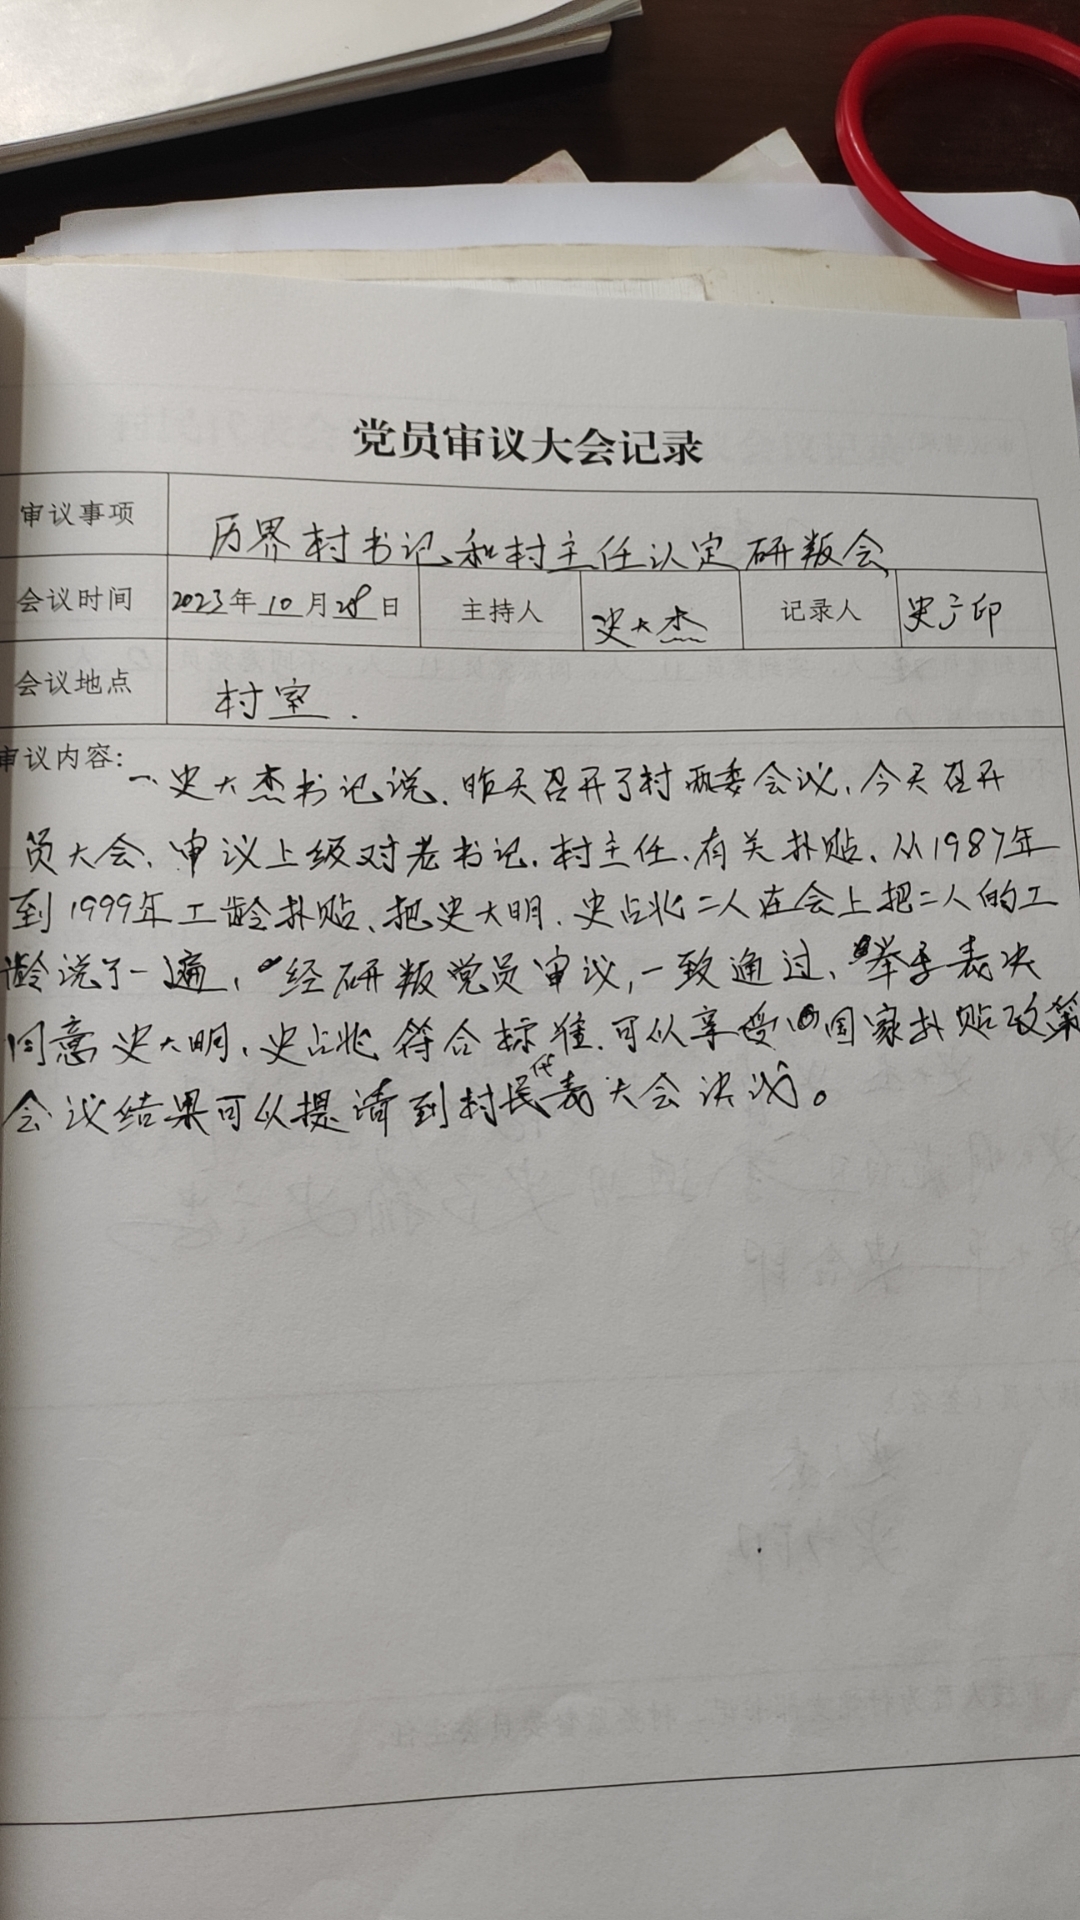 党员审议大会记录
审议事项 历界村书记和村主任认定研叛会
会议时间 2023年10月28日 主持人 史大杰 记录人 史广印
会议地点 村室.
审议内容:一、史大杰书记说、昨天召开了村两委会议、今天召开
员大会、审议上级对老书记、村主任、有关补贴、从1987年
到1999年工龄补贴、把史大明、史占兆二人在会上把二人的工
龄说了一遍,经研叛党员审议,一致通过、举手表决
同意史大明、史占兆符合标准、可以享受国家补贴政策
会议结果可以提请到村民代表大会决议。